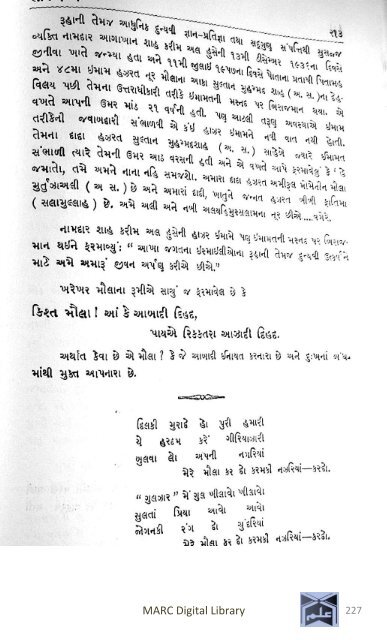 ૨૧૩
રૂહાની તેમજ આધુનિક દુન્યવી જ્ઞાન-પ્રતિજ્ઞા તથા સદ્‌ગુણ સંપત્તિથી સુસજ્જ
વ્યક્તિ નામદાર આગાખાન શાહ કરીમ અલ હુસેની ૧૩મી ડીસેમ્બર ૧૯૩૬ના દિવસે
જીનીવા ખાતે જન્મ્યા હતા અને ૧૧મી જુલાઈ ૧૯૫૭ના દિવસે પોતાના પ્રતાપી પિતામહ
અને ૪૮મા ઇમામ હઝરત નૂર મૌલાના આકા સુલ્તાન મુહમ્મદ શાહ (અ. સ.)ના દેહ-
વિલય પછી તેમના ઉત્તરાધીકારી તરીકે ઈમામતની મસ્નદ પર બિરાજમાન થયા. એ
વખતે આપની ઉમર માંડ ૨૧ વર્ષની હતી. પણ આટલી તરૂણ અવસ્થાએ ઈમામ
તરીકેની જવાબદારી સંભાળવી એ કંઈ હાઝર ઇમામને નવી વાત નથી હોતી.
તેમના દાદા હઝરત સુલ્તાન મુહમ્મદશાહ (અ. સ.) સાહેબે જ્યારે ઈમામત
સંભાળી ત્યારે તેમની ઉમર આઠ વરસની હતી અને એ વખતે આપે ફરમાવેલું કે "હે
જમાતો, તમે અમને નાના નહિ સમજશો. અમારા દાદા હઝરત અમીરૂલ મોમેનીન મૌલા
મુર્તુઝાઅલી (અ. સ.) છે અને અમારાં દાદી, ખાતૂને જન્નત હઝરત બીબી ફાતિમા
(સલામુલ્લાહ) છે, અમે અલી અને નબી અલયહિમુસસલામના નૂર છીએ....વગેરે.
નામદાર શાહ કરીમ અલ હુસેની હાઝર ઇમામે પણ ઈમામતની મસ્નદ પર બિરાજ-
માન થઈને ફરમાવ્યું: "આખા જગતના ઇસ્માઈલીઓના રૂહાની તેમજ દુન્યવી ઉત્કર્ષને
માટે અમે અમારૂં જીવન અર્પણ કરીએ છીએ."
ખરેખર મૌલાના રૂમીએ સાચું જ ફરમાવેલ છે કે
કિસ્ત મૌલા! આં કે આબાદી દિહદ,
પાયએ રિકકતરા આઝાદી દિહદ.
અર્થાત કેવા છે એ મૌલા? કે જે આબાદી ઇનાયત કરનારા છે અને દુ:ખનાં બંધ-
માંથી મુક્ત આપનારા છે.
દિલકી મુરાદે હો પુરી હમારી
યે હરદમ કરેં ગીરિયાઝારી
ખુલવા લો અપની નઝરિયાં
મેરે મૌલા કર દો કરમકી નઝરિયાં—કરદો.
"ગુલઝાર" મેં ગુલ ખીલાવો ખીલાવો
સુલતાં પ્રિયા આવો આવો
જોગનકી રંગ દો ચુંદરિયાં
મેરે મૌલા કર દો કરમકી નઝરિયાં—કરદો.
MARC Digital Library
227